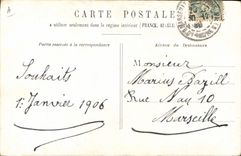 CARTE POSTALE
à utiliser seulement dans le régime intérieur (FRANCE,
Partie réservée à la correspondance
Adresse du Destinataire
Souhaits
1er Janvier 1906
Monsieur
Marius Bazill
Rue Nau 10
Marseille